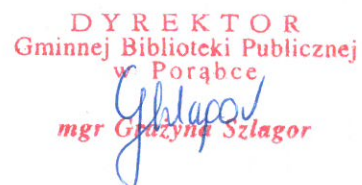 DYREKTOR
Gminnej Biblioteki Publicznej
w Porąbce
mgr Grażyna Szlagor